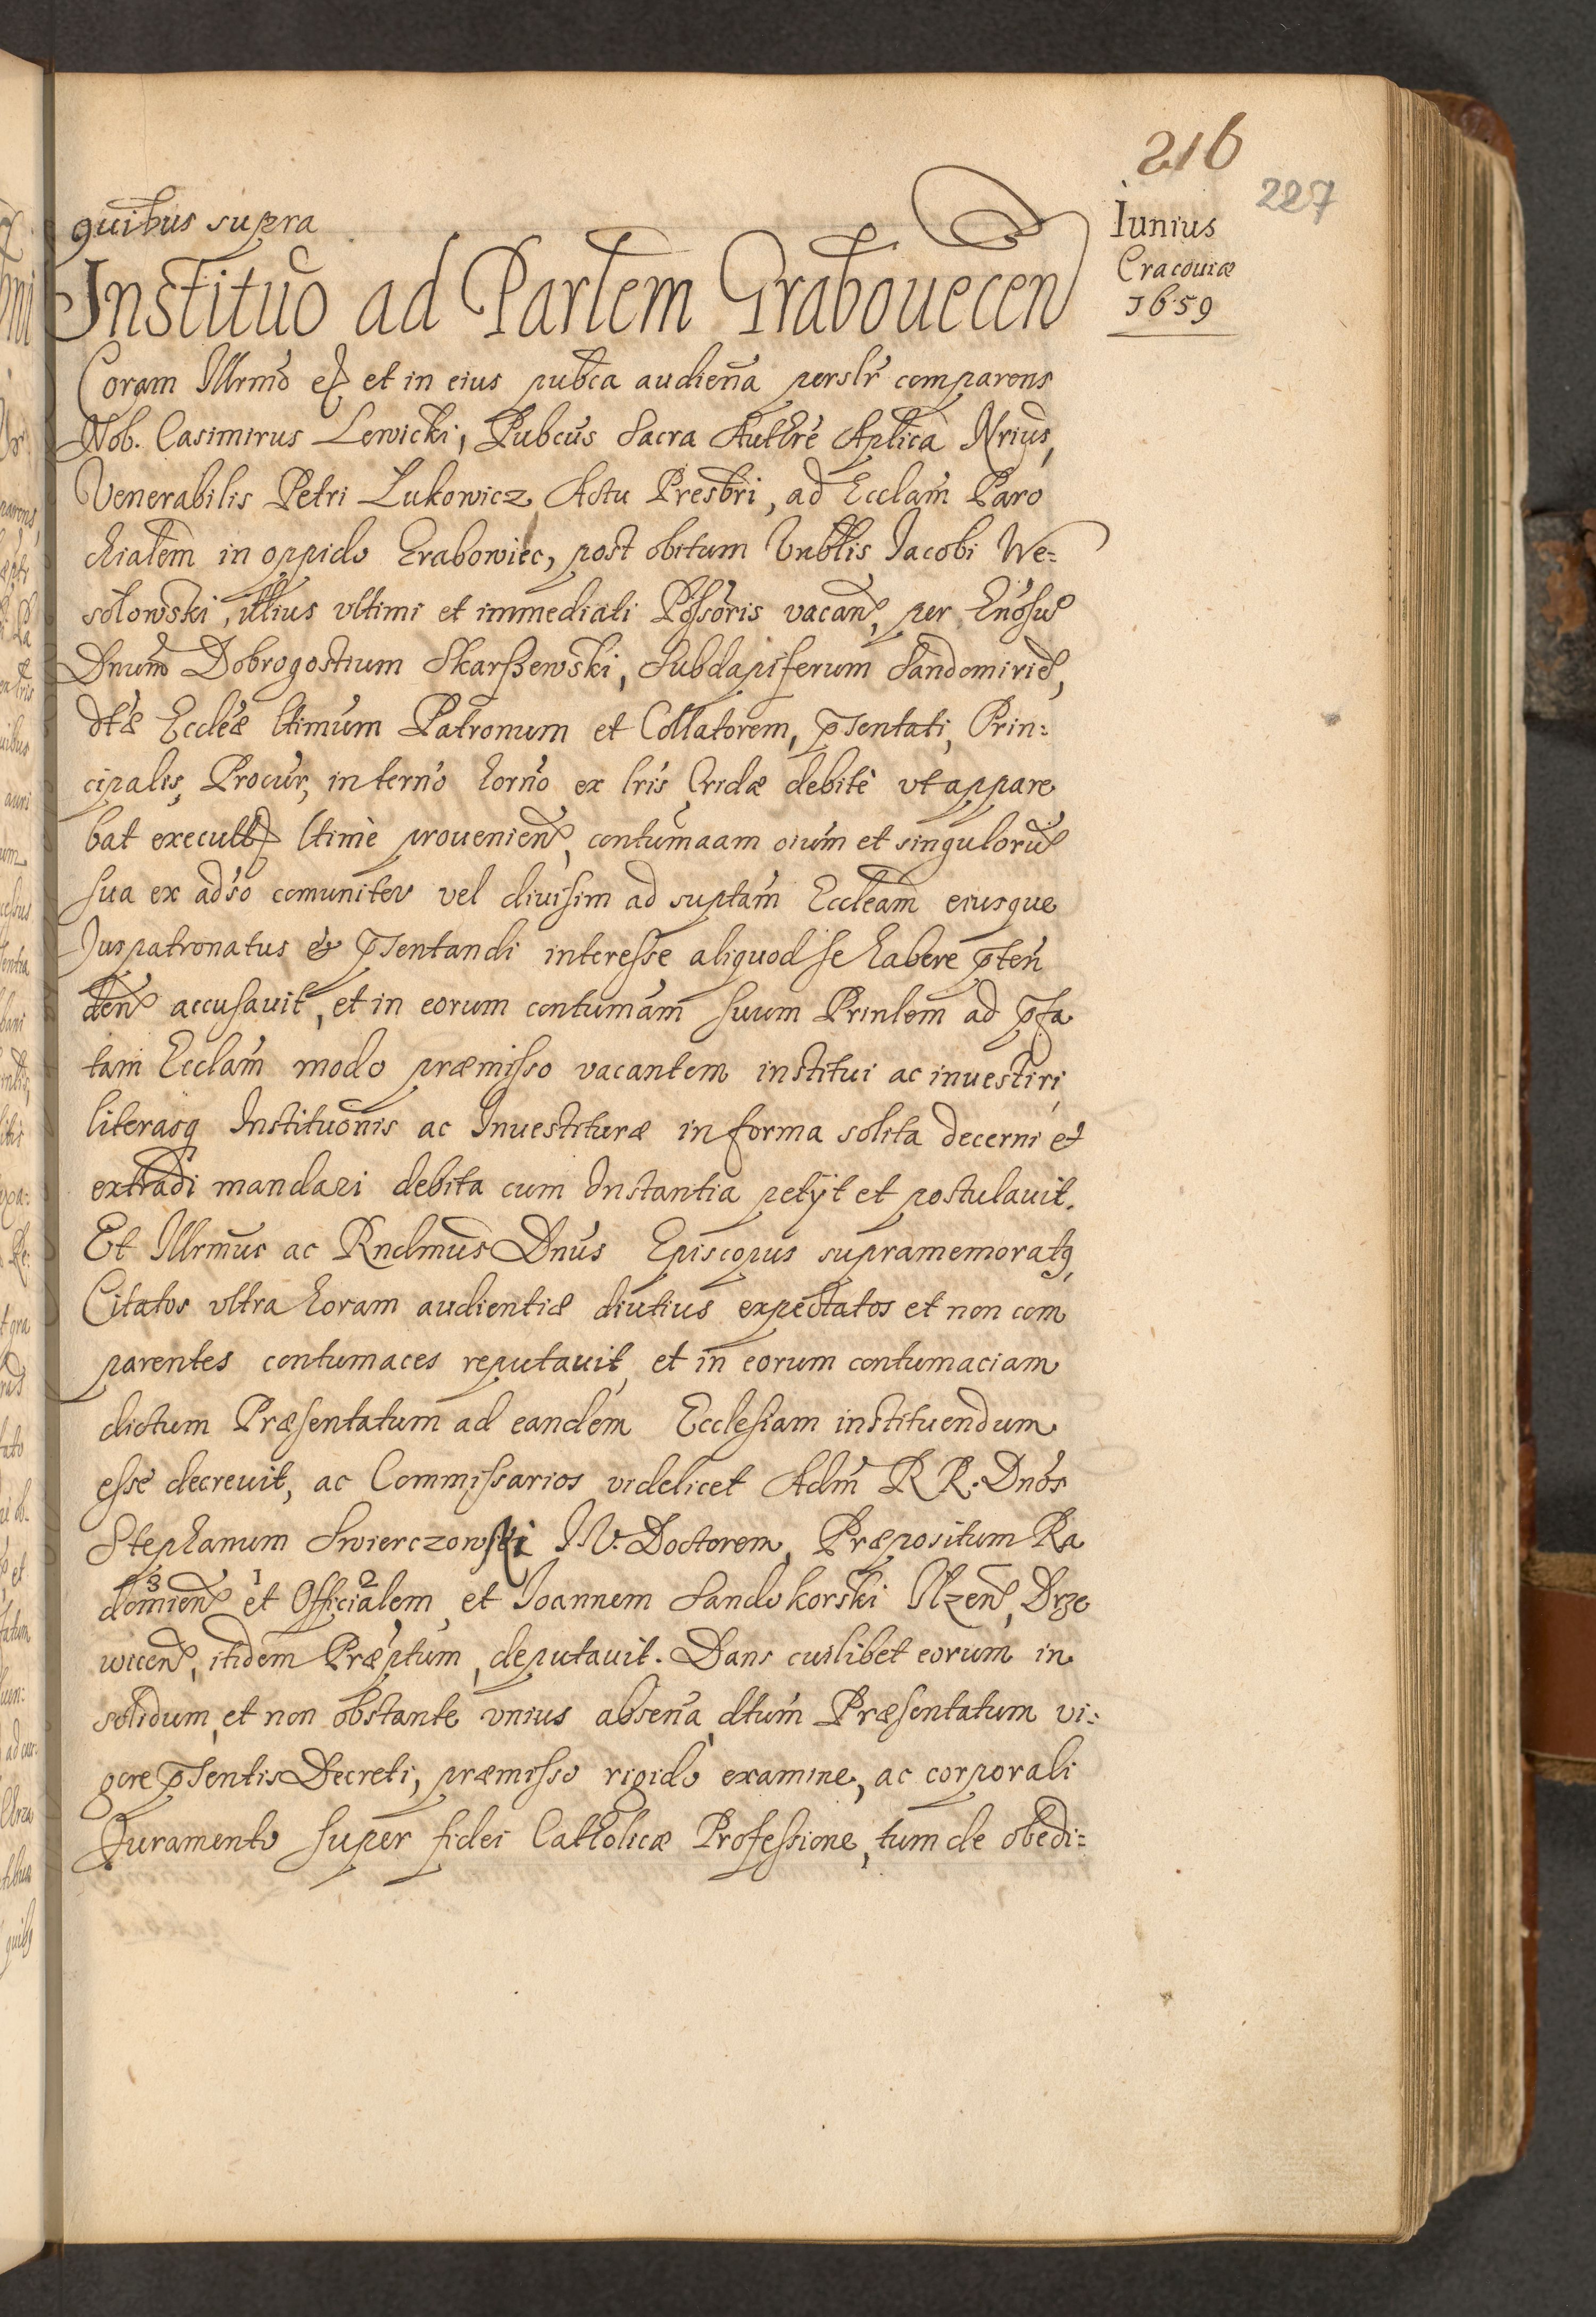 216
227
Iunius
Cracouiæ
1659
quibus supra
Instituõ ad Parlem Grabouecen
Coram Illrmo et et in eius pubca audiena perslr comparens
Nob. Casimirus Lewicki, Pubcus Sacra Authre Aplica Nrius,
Venerabilis Petri Lukowicz Actu Presbri, ad Ecclam Paro
chialem in oppido Grabowiec, post obitum Vnblis Iacobi We=
solowski, illius vltimi et immediati Possoris vacan, per Gnosu
Dnum Dobrogostium Skarszewski, Subdapiferum Sandomirien,
dtæ Eccleæ ltimum Patronum et Collatorem, pñsentati, Prin=
cipalis, Procur, in termo horno ex lris Cridæ debite vt appare
bat execut ltime prouenien, contumaam oium et singuloru
sua ex adso comuniter vel diuisim ad suptam Eccleam eiusque
Juspatronatus & pñsentandi interesse aliquod se habere pten
den accusauit, et in eorum contumam suum Prinlem ad pfa
tam Ecclam modo præmisso vacantem institui ac inuestiri,
literasq Instituonis ac Inuestituræ in forma solita decerni et
extradi mandari debita cum Instantia petijt et postulauit.
Et Illrmus ac Rndmus Dnus Episcopus supramemoratq,
Citatos vltra horam audientiæ diutius expectatos et non com
parentes contumaces reputauit, et in eorum contumaciam
dictum Præsentatum ad eandem Ecclesiam instituendum
esse decreuit, ac Commissarios videlicet Adm R R. Dnos
Stephanum Swierczowski I.V. Doctorem, Præpositum Ra
3 1 2
domien et Officialem, et Ioannem Sandokorski Ilzen, Drze
wicen, itidem Præptum, deputauit. Dans cuilibet eorum in
solidum, et non obstante vnius absena, dtum Præsentatum vi=
gore pñsentis Decreti, præmisso rigido examine, ac corporali
Iuramento super fidei Catholicæ Professione, tum de obedi=